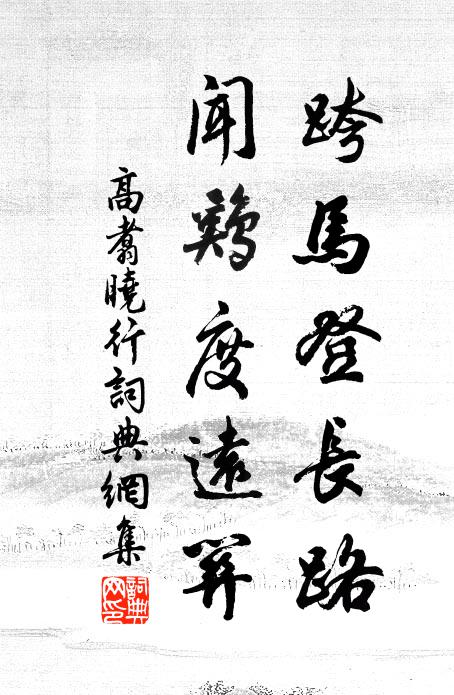 跨馬登長路
聞鷄度遠關
高翥曉行詞典網集
詞典网印